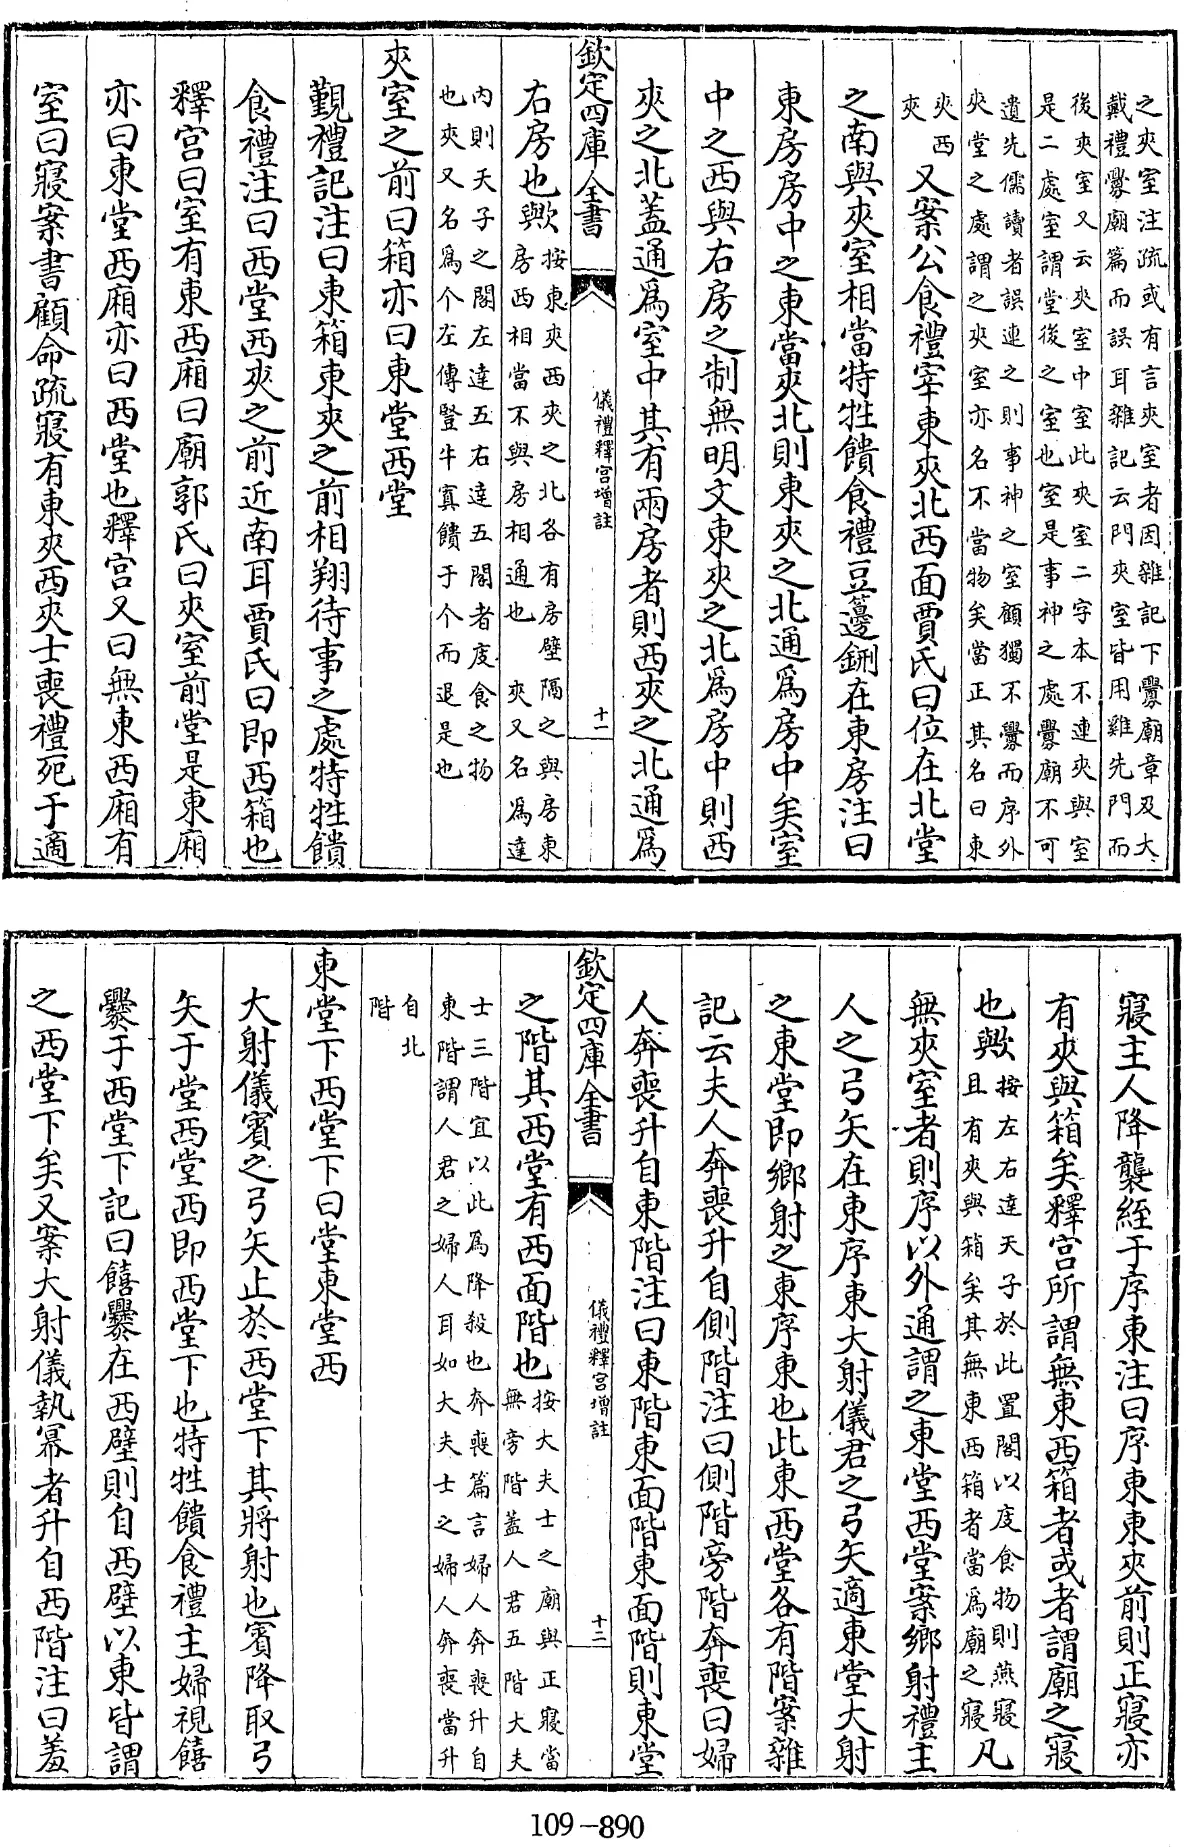 之夾室注疏或有言夾室者因雜記下釁廟章及大
戴禮釁廟篇而誤耳雜記云門夾室皆用雞先門而
後夾室又云夾室中室此夾室二字本不連夾與室
是二處室謂堂後之室也室是事神之處釁廟不可
遺先儒讀者誤連之則事神之室顧獨不釁而序外
夾堂之處謂之夾室亦名不當物矣當正其名曰東
夾西
夾
又案公食禮宰東夾北西面賈氏曰位在北堂
之南與夾室相當特牲饋食禮豆籩鉶在東房注曰
東房房中之東當夾北則東夾之北通爲房中矣室
中之西與右房之制無明文東夾之北爲房中則西
夾之北蓋通爲室中其有兩房者則西夾之北通爲
欽定四庫全書
儀禮釋宮增註
十一
右房也歟
按東夾西夾之北各有房壁隔之與房東
房西相當不與房相通也 夾又名爲達
內則天子之閣左達五右達五閣者庋食之物
也夾又名爲个左傳豎牛寘饋于个而退是也
夾室之前曰箱亦曰東堂西堂
覲禮記注曰東箱東夾之前相翔待事之處特牲饋
食禮注曰西堂西夾之前近南耳賈氏曰即西箱也
釋宮曰室有東西廂曰廟郭氏曰夾室前堂是東廂
亦曰東堂西廂亦曰西堂也釋宮又曰無東西廂有
室曰寢案書顧命疏寢有東夾西夾士喪禮死于適
寢主人降襲絰于序東注曰序東東夾前則正寢亦
有夾與箱矣釋宮所謂無東西箱者或者謂廟之寢
也歟
按左右達天子於此置閣以庋食物則燕寢
且有夾與箱矣其無東西箱者當爲廟之寢
凡
無夾室者則序以外通謂之東堂西堂案鄉射禮主
人之弓矢在東序東大射儀君之弓矢適東堂大射
之東堂即鄉射之東序東也此東西堂各有階案雜
記云夫人奔喪升自側階注曰側階旁階奔喪曰婦
人奔喪升自東階注曰東階東面階東面階則東堂
欽定四庫全書
儀禮釋宮增註
十二
之階其西堂有西面階也
按大夫士之廟與正寢當
無旁階蓋人君五階大夫
士三階宜以此爲降殺也奔喪篇言婦人奔喪升自
東階謂人君之婦人耳如大夫士之婦人奔喪當升
自北
階
東堂下西堂下曰堂東堂西
大射儀賓之弓矢止於西堂下其將射也賓降取弓
矢于堂西堂西即西堂下也特牲饋食禮主婦視饎
爨于西堂下記曰饎爨在西壁則自西壁以東皆謂
之西堂下矣又案大射儀執冪者升自西階注曰羞
109-890